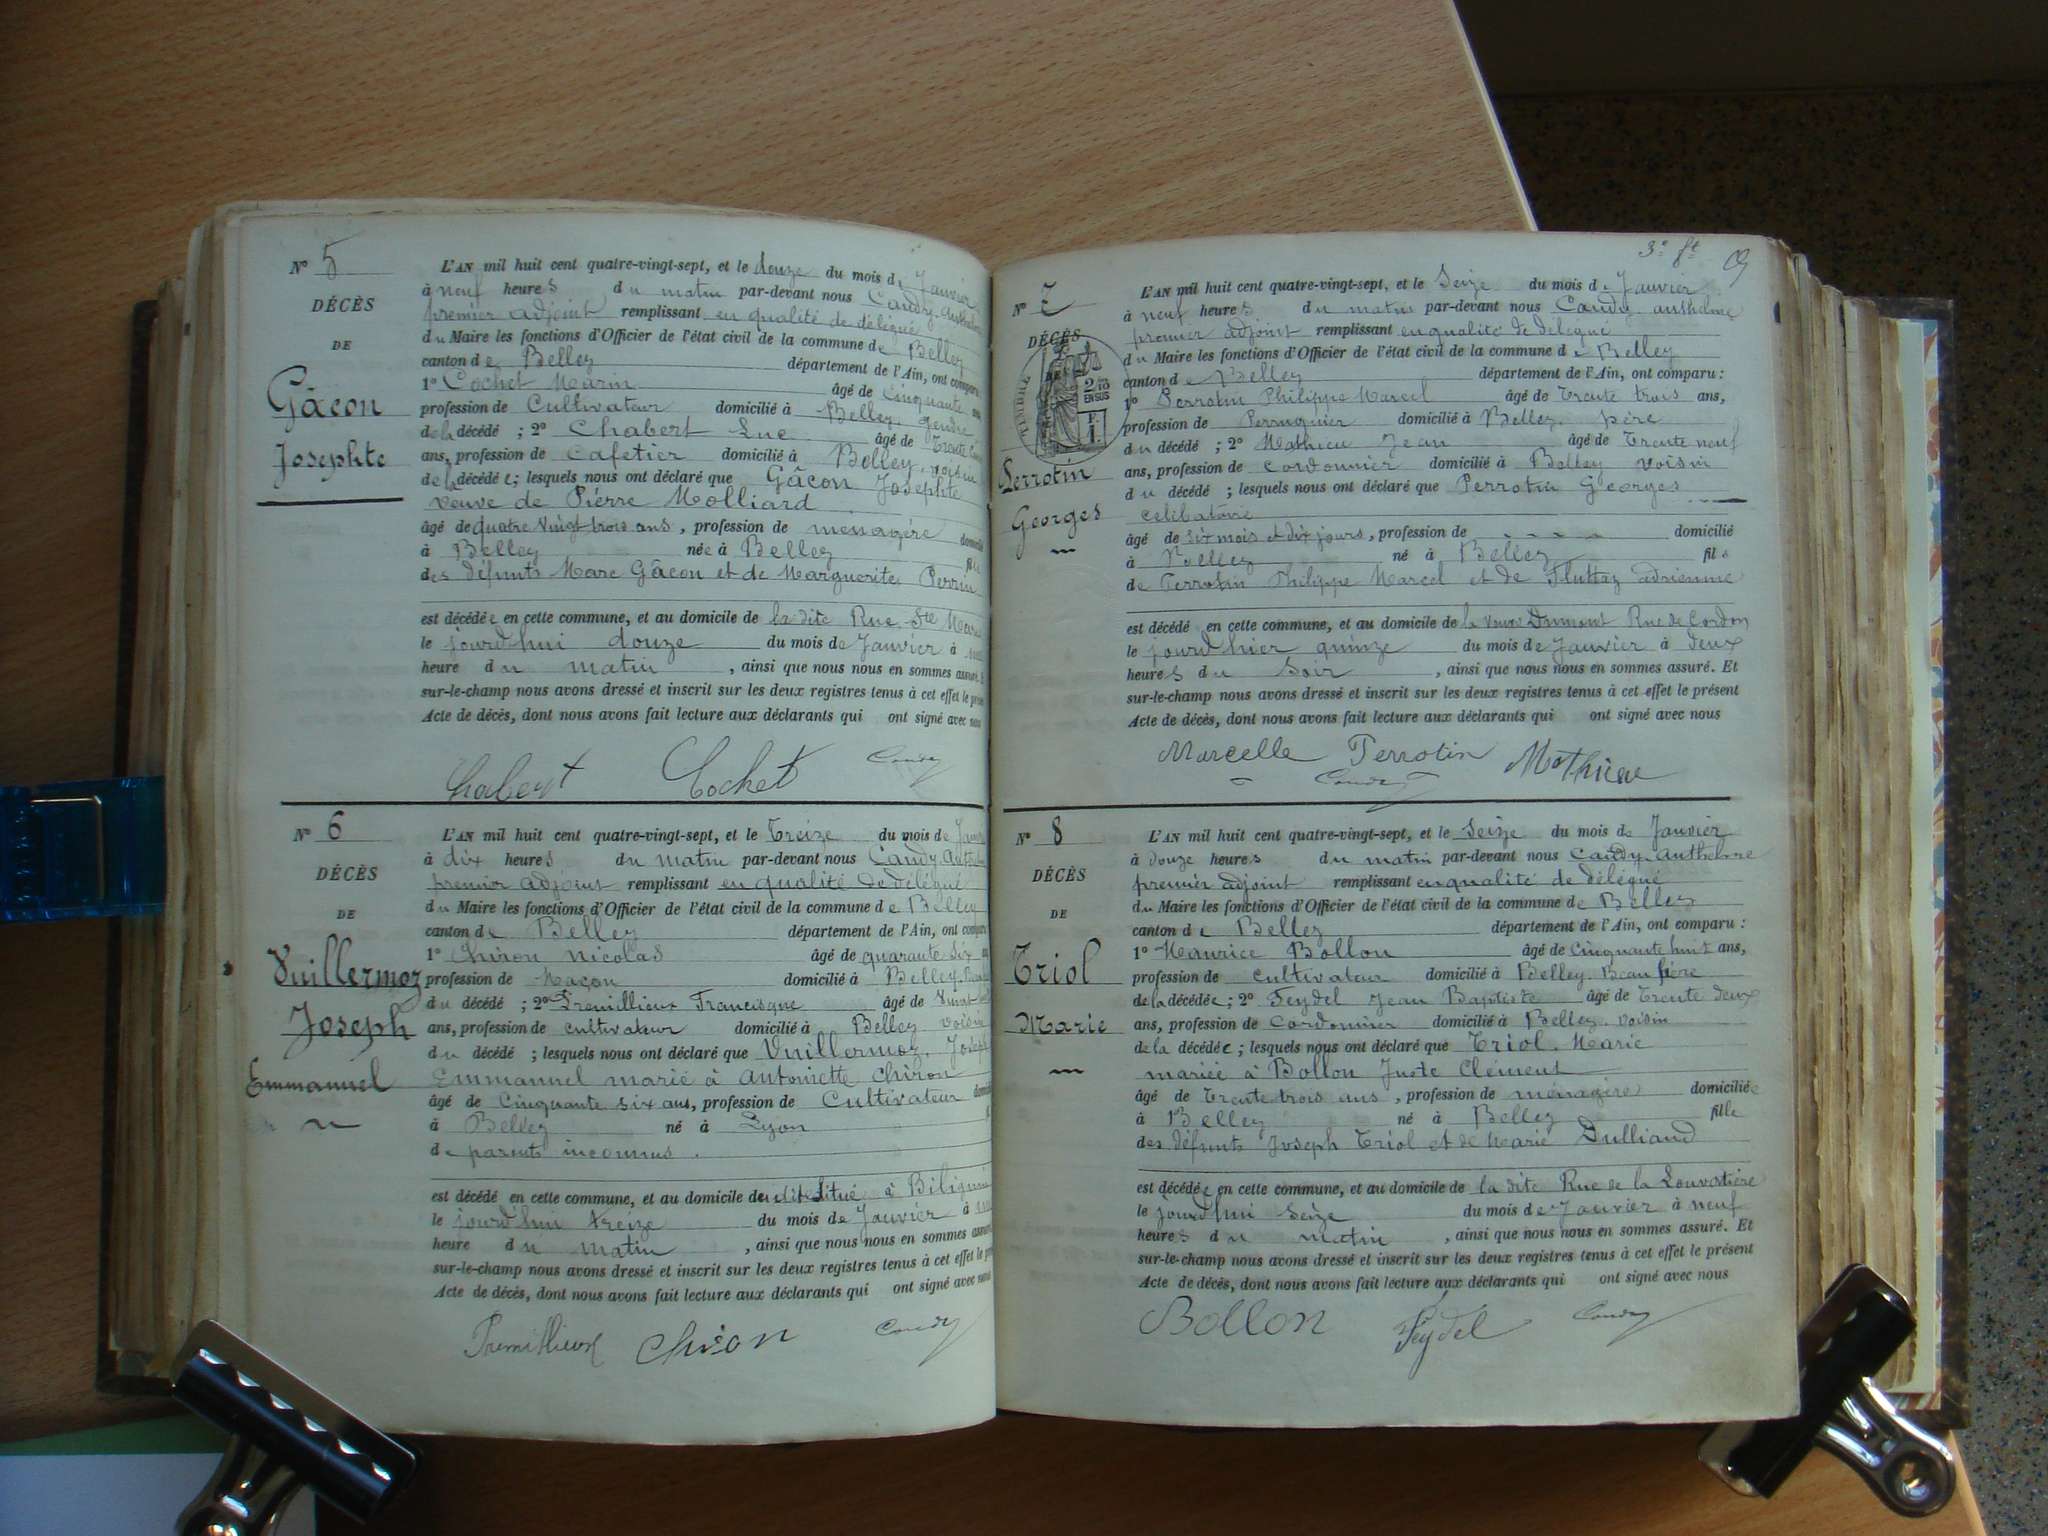 N° 5
L'AN mil huit cent quatre-vingt-sept, et le douze du mois de Janvier
à neuf heures du matin par-devant nous Candy
DÉCÈS
premier adjoint remplissant en qualité de délégué
du Maire les fonctions d'Officier de l'état civil de la commune de Belley
DE
canton de Belley département de l'Ain, ont comparu
1° Cochet Marin âgé de Cinquante
Gâcon
profession de Cultivateur domicilié à Belley, gendre
de la décédé ; 2° Chabert Luc âgé de Trente
Josephte
ans, profession de Cafetier domicilié à Belley, voisin
de la décédée ; lesquels nous ont déclaré que Gâcon Josephte
veuve de Pierre Molliard
âgé de quatre vingt trois ans, profession de ménagère
à Belley née à Belley
des défunts Marc Gâcon et de Marguerite Perrin
est décédée en cette commune, et au domicile de la dite Rue Ste Marie
le jourd'hui douze du mois de Janvier à
heure du matin, ainsi que nous nous en sommes assuré. Et
sur-le-champ nous avons dressé et inscrit sur les deux registres tenus à cet effet le présent
Acte de décès, dont nous avons fait lecture aux déclarants qui ont signé avec nous
Chabert Cochet Candy
N° 6
L'AN mil huit cent quatre-vingt-sept, et le Treize du mois de
à dix heures du matin par-devant nous Candy
DÉCÈS
premier adjoint remplissant en qualité de délégué
du Maire les fonctions d'Officier de l'état civil de la commune de Belley
DE
canton de Belley département de l'Ain, ont comparu
1° Chiron Nicolas âgé de quarante six
Vuillermoz
profession de Maçon domicilié à Belley
du décédé ; 2° Premillieux Francisque âgé de Vingt
Joseph
ans, profession de cultivateur domicilié à Belley voisin
du décédé ; lesquels nous ont déclaré que Vuillermoz, Joseph
Emmanuel
Emmanuel marié à Antoinette Chiron
âgé de Cinquante six ans, profession de Cultivateur
à Belley né à Lyon
de parents inconnus.
est décédé en cette commune, et au domicile du dit situé à
le jourd'hui treize du mois de Janvier à
heure du matin, ainsi que nous nous en sommes assuré
sur-le-champ nous avons dressé et inscrit sur les deux registres tenus à cet effet le
Acte de décès, dont nous avons fait lecture aux déclarants qui ont signé avec nous
Premillieux Chiron Candy
3e ft
N° 7
L'AN mil huit cent quatre-vingt-sept, et le Seize du mois de Janvier
à neuf heures du matin par-devant nous Candy anthelme
DÉCÈS
premier adjoint remplissant en qualité de délégué
du Maire les fonctions d'Officier de l'état civil de la commune de Belley
TIMBRE
canton de Belley département de l'Ain, ont comparu :
2/10 EN SUS
1° Perrotin Philippe Marcel âgé de Trente trois ans,
profession de Perruquier domicilié à Belley. père
du décédé ; 2° Mathieu Jean âgé de Trente neuf
Perrotin
ans, profession de Cordonnier domicilié à Belley voisin
du décédé ; lesquels nous ont déclaré que Perrotin Georges
Georges
célibataire
âgé de six mois et dix jours, profession de domicilié
à Belley né à Belley fils
de Perrotin Philippe Marcel et de Fluttaz adrienne
est décédé en cette commune, et au domicile de la veuve Dumont Rue de Cordon
le jourd'hier quinze du mois de Janvier à deux
heures du Soir, ainsi que nous nous en sommes assuré. Et
sur-le-champ nous avons dressé et inscrit sur les deux registres tenus à cet effet le présent
Acte de décès, dont nous avons fait lecture aux déclarants qui ont signé avec nous
Marcelle Perrotin Mathieu
Candy
N° 8
L'AN mil huit cent quatre-vingt-sept, et le Seize du mois de Janvier
à douze heures du matin par-devant nous Candy anthelme
DÉCÈS
premier adjoint remplissant en qualité de délégué
du Maire les fonctions d'Officier de l'état civil de la commune de Belley
DE
canton de Belley département de l'Ain, ont comparu :
1° Maurice Bollon âgé de Cinquante huit ans,
Triol
profession de cultivateur domicilié à Belley. Beau père
de la décédée ; 2° Feydel Jean Baptiste âgé de Trente deux
Marie
ans, profession de Cordonnier domicilié à Belley. voisin
de la décédée ; lesquels nous ont déclaré que Triol. Marie
mariée à Bollon Juste Clément
âgé de Trente trois ans, profession de ménagère domiciliée
à Belley né à Belley fille
des défunts Joseph Triol et de Marie Dulliand
est décédée en cette commune, et au domicile de la dite Rue de la Louvatière
le jourd'hui Seize du mois de Janvier à neuf
heures du matin, ainsi que nous nous en sommes assuré. Et
sur-le-champ nous avons dressé et inscrit sur les deux registres tenus à cet effet le présent
Acte de décès, dont nous avons fait lecture aux déclarants qui ont signé avec nous
Bollon Feydel Candy